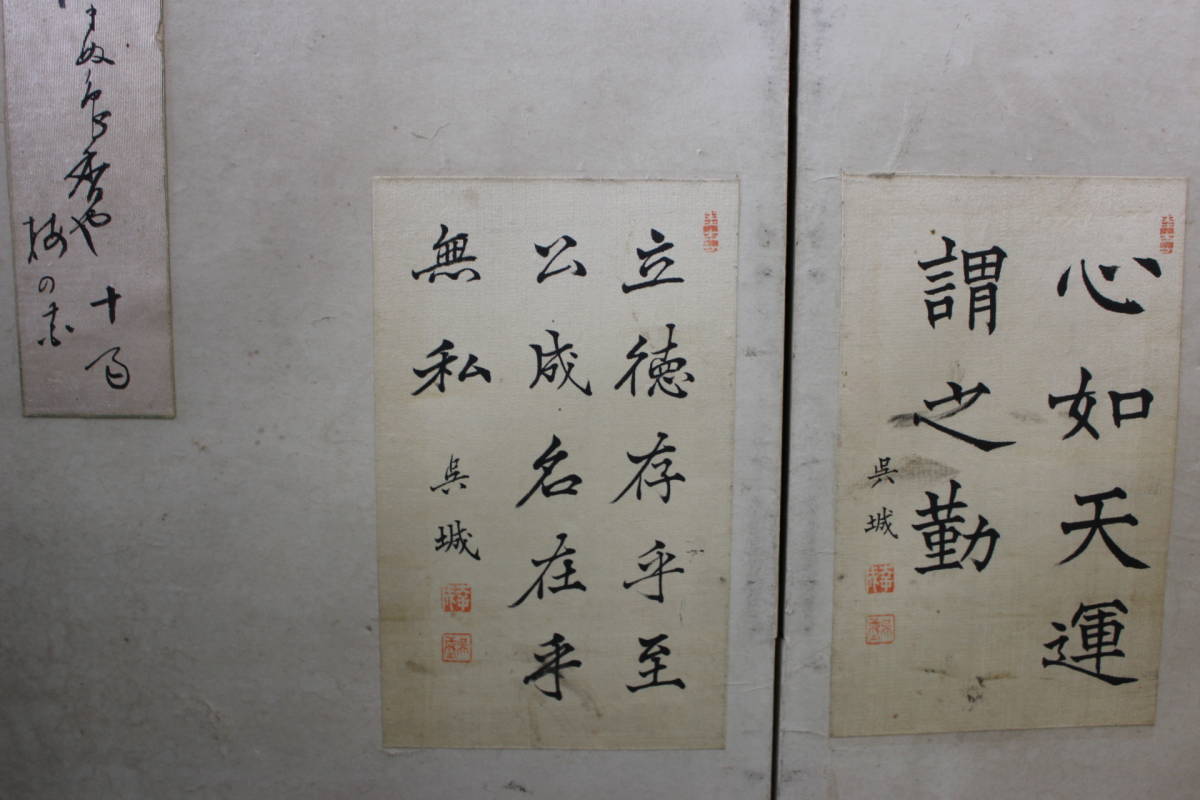 心如天運
謂之勤
呉城
立徳存乎至
公成名在乎
無私
呉城
香や
梅の
十